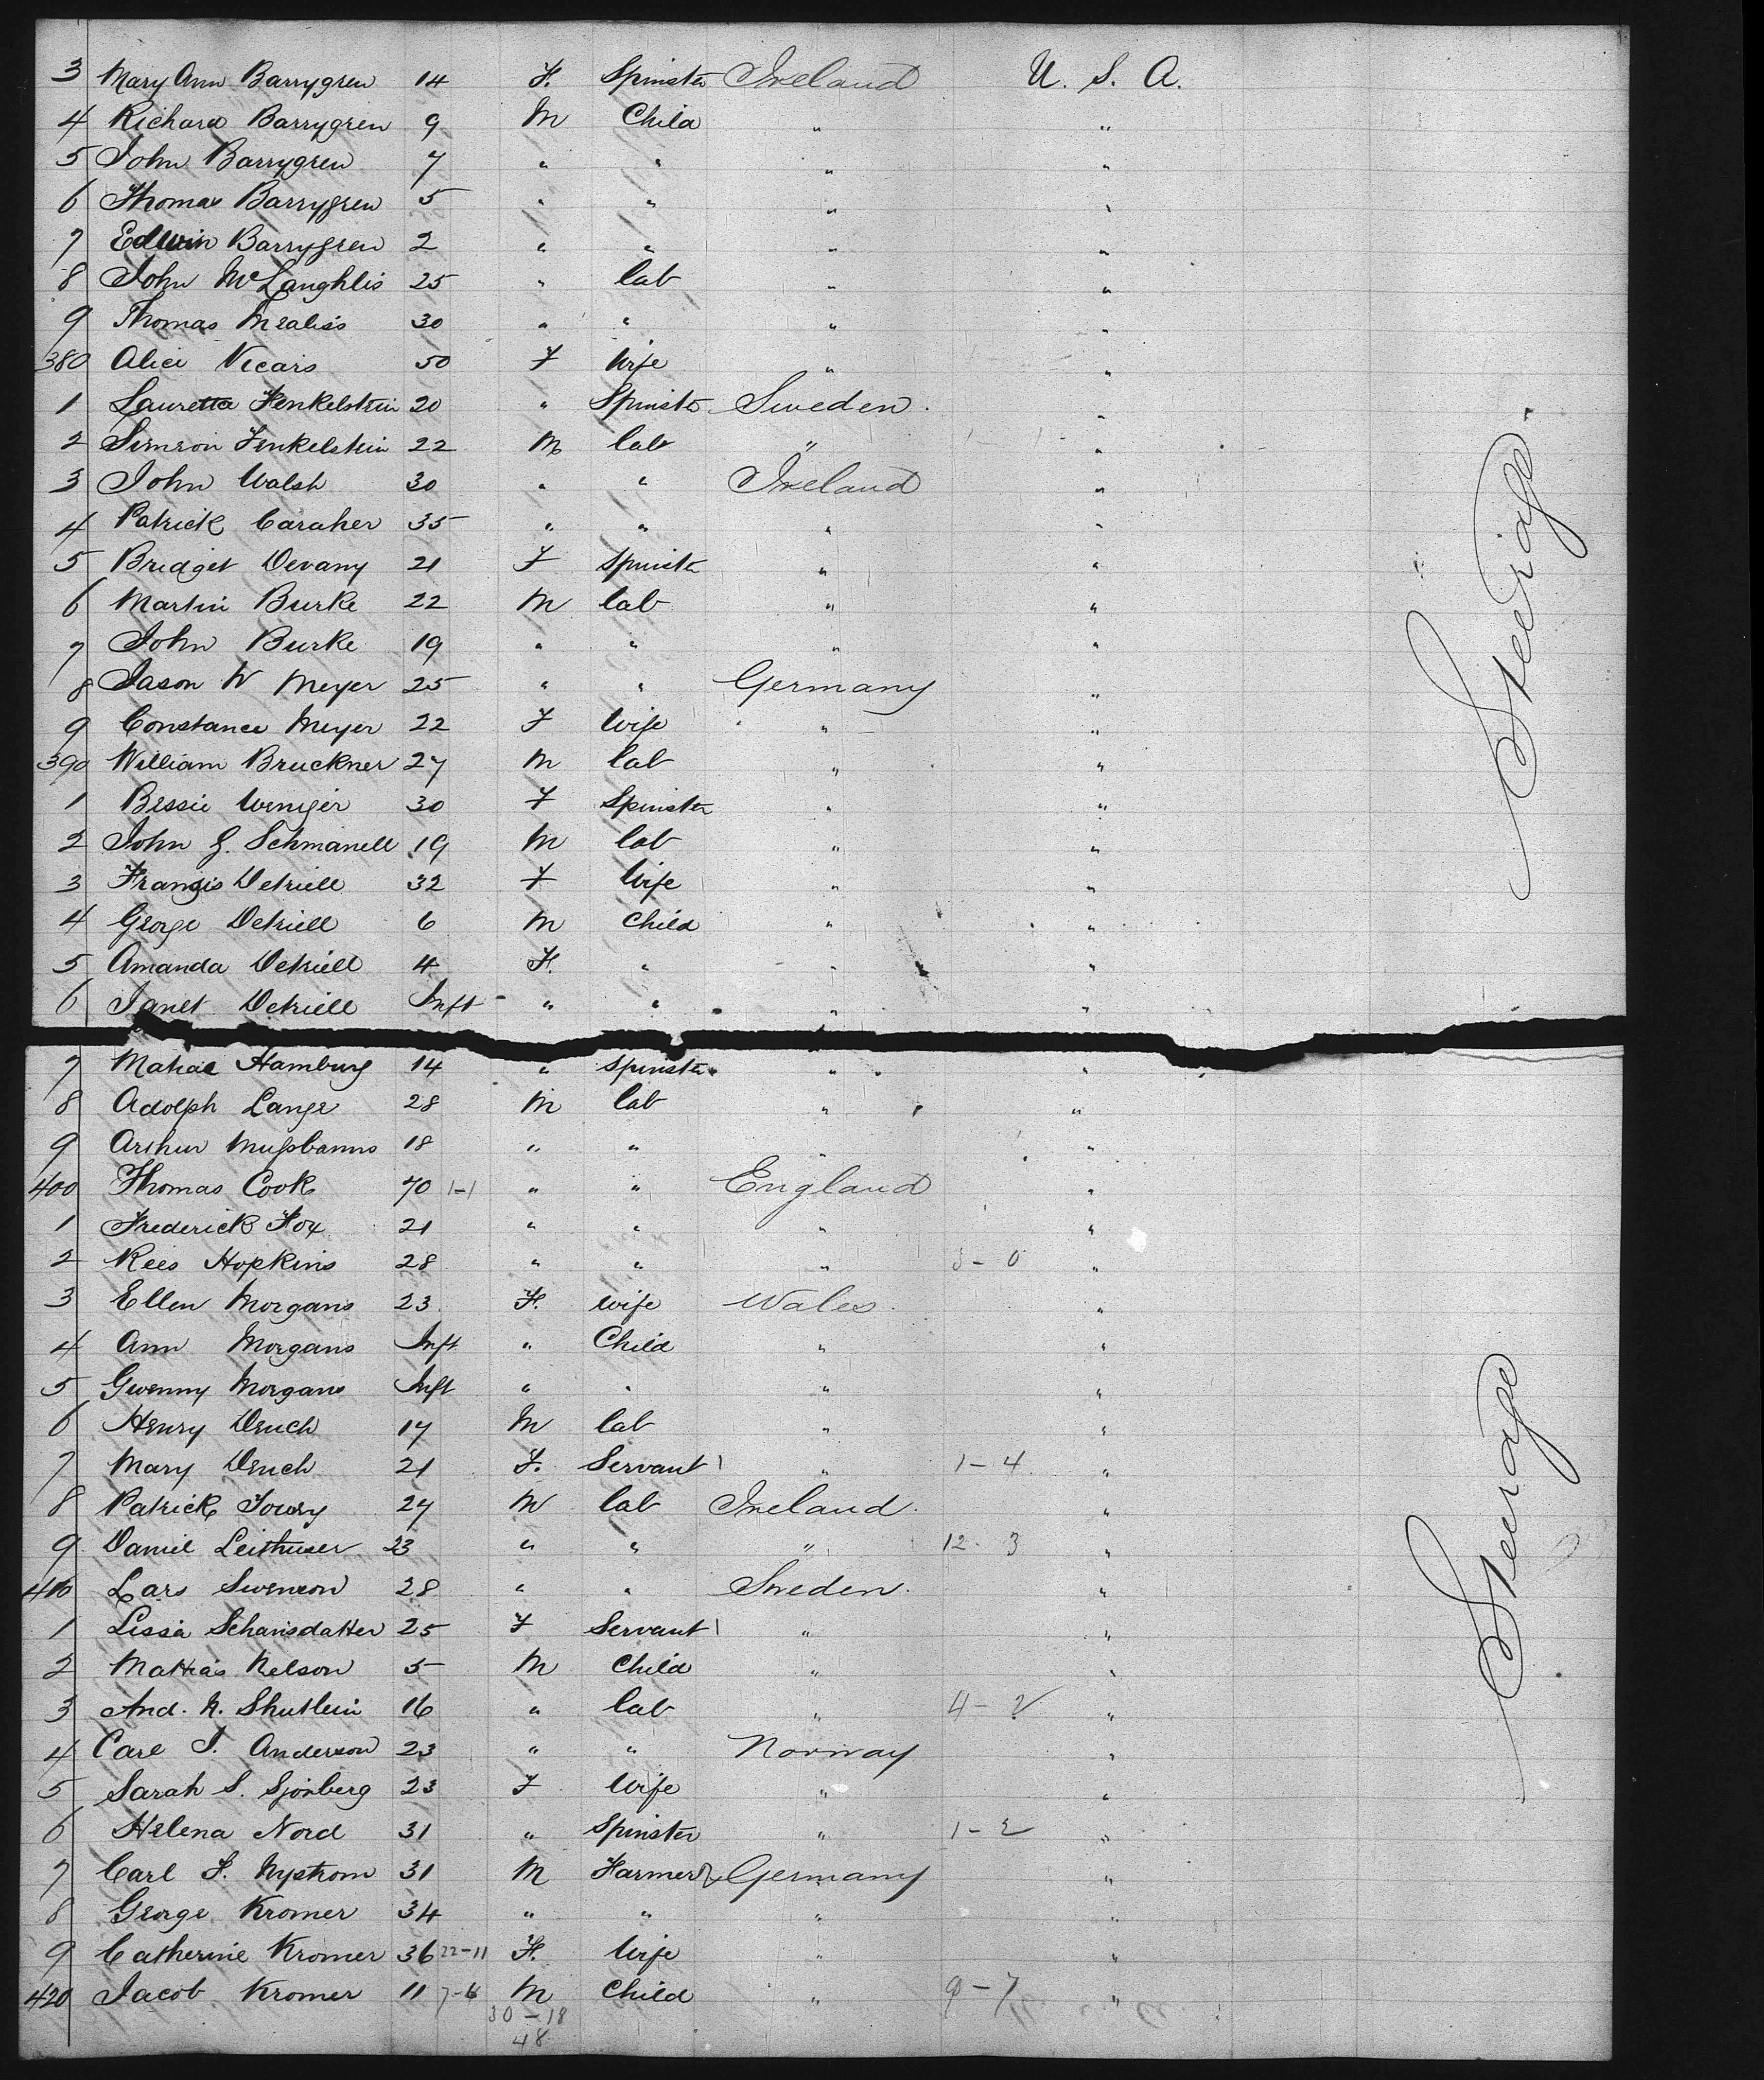 3 Mary Ann Barrygren 14 F. Spinster Ireland U. S. A.
4 Richard Barrygren 9 M Child " "
5 John Barrygren 7 " " " "
6 Thomas Barrygren 5 " " " "
7 Edwin Barrygren 2 " " " "
8 John McLaughlis 25 " lab " "
9 Thomas Mealiss 30 " " " "
380 Alice Vicars 50 F Wife " "
1 Lauretta Fenkelstein 20 " Spinster Sweden. "
2 Simeon Fenkelstein 22 M lab " "
3 John Walsh 30 " " Ireland "
4 Patrick Caraher 35 " " " "
5 Bridget Devany 21 F Spinster " "
6 Martin Burke 22 M lab " "
7 John Burke 19 " " " "
8 Jason W Meyer 25 " " Germany "
9 Constance Meyer 22 F Wife " "
390 William Bruckner 27 M lab " "
1 Bessie Wenger 30 F Spinster " "
2 John G. Schmanell 19 M lab " "
3 Frangis Detriell 32 F Wife " "
4 George Detriell 6 M Child " "
5 Amanda Detriell 4 F. " " "
6 Janet Detriell Inft " " " "
Steerage
7 Hamburg 14 " Spinster " "
8 Adolph Lange 28 M lab " "
9 Arthur 18 " " " "
400 Thomas Cook 70 1-1 " " England "
1 Frederick Fox 21 " " " "
2 Rees Hopkins 28 " " " 3-0 "
3 Ellen Morgans 23 F. Wife Wales. "
4 Ann Morgans Inft " Child " "
5 Gwenny Morgans Inft " " " "
6 Henry Deuch 17 M lab " "
7 Mary Deuch 21 F. Servant " 1-4 "
8 Patrick Towry 27 M lab Ireland. "
9 Daniel Leithuser 23 " " " 12-3 "
410 Lars Swenson 28 " " Sweden. "
1 Lissa Schansdatter 25 F Servant " "
2 Mattias Nelson 5 M Child " "
3 And. N. Shutlein 16 " lab " 4-2 "
4 Carl J. Anderson 23 " " Norway "
5 Sarah S. Sjonberg 23 F Wife " "
6 Helena Nord 31 " Spinster " 1-2 "
7 Carl F. Nystrom 31 M Farmer Germany "
8 George Kromer 34 " " " "
9 Catherine Kromer 36 22-11 F. Wife " "
420 Jacob Kromer 11 7-6 M Child " 9-7 "
30-18
48
Steerage